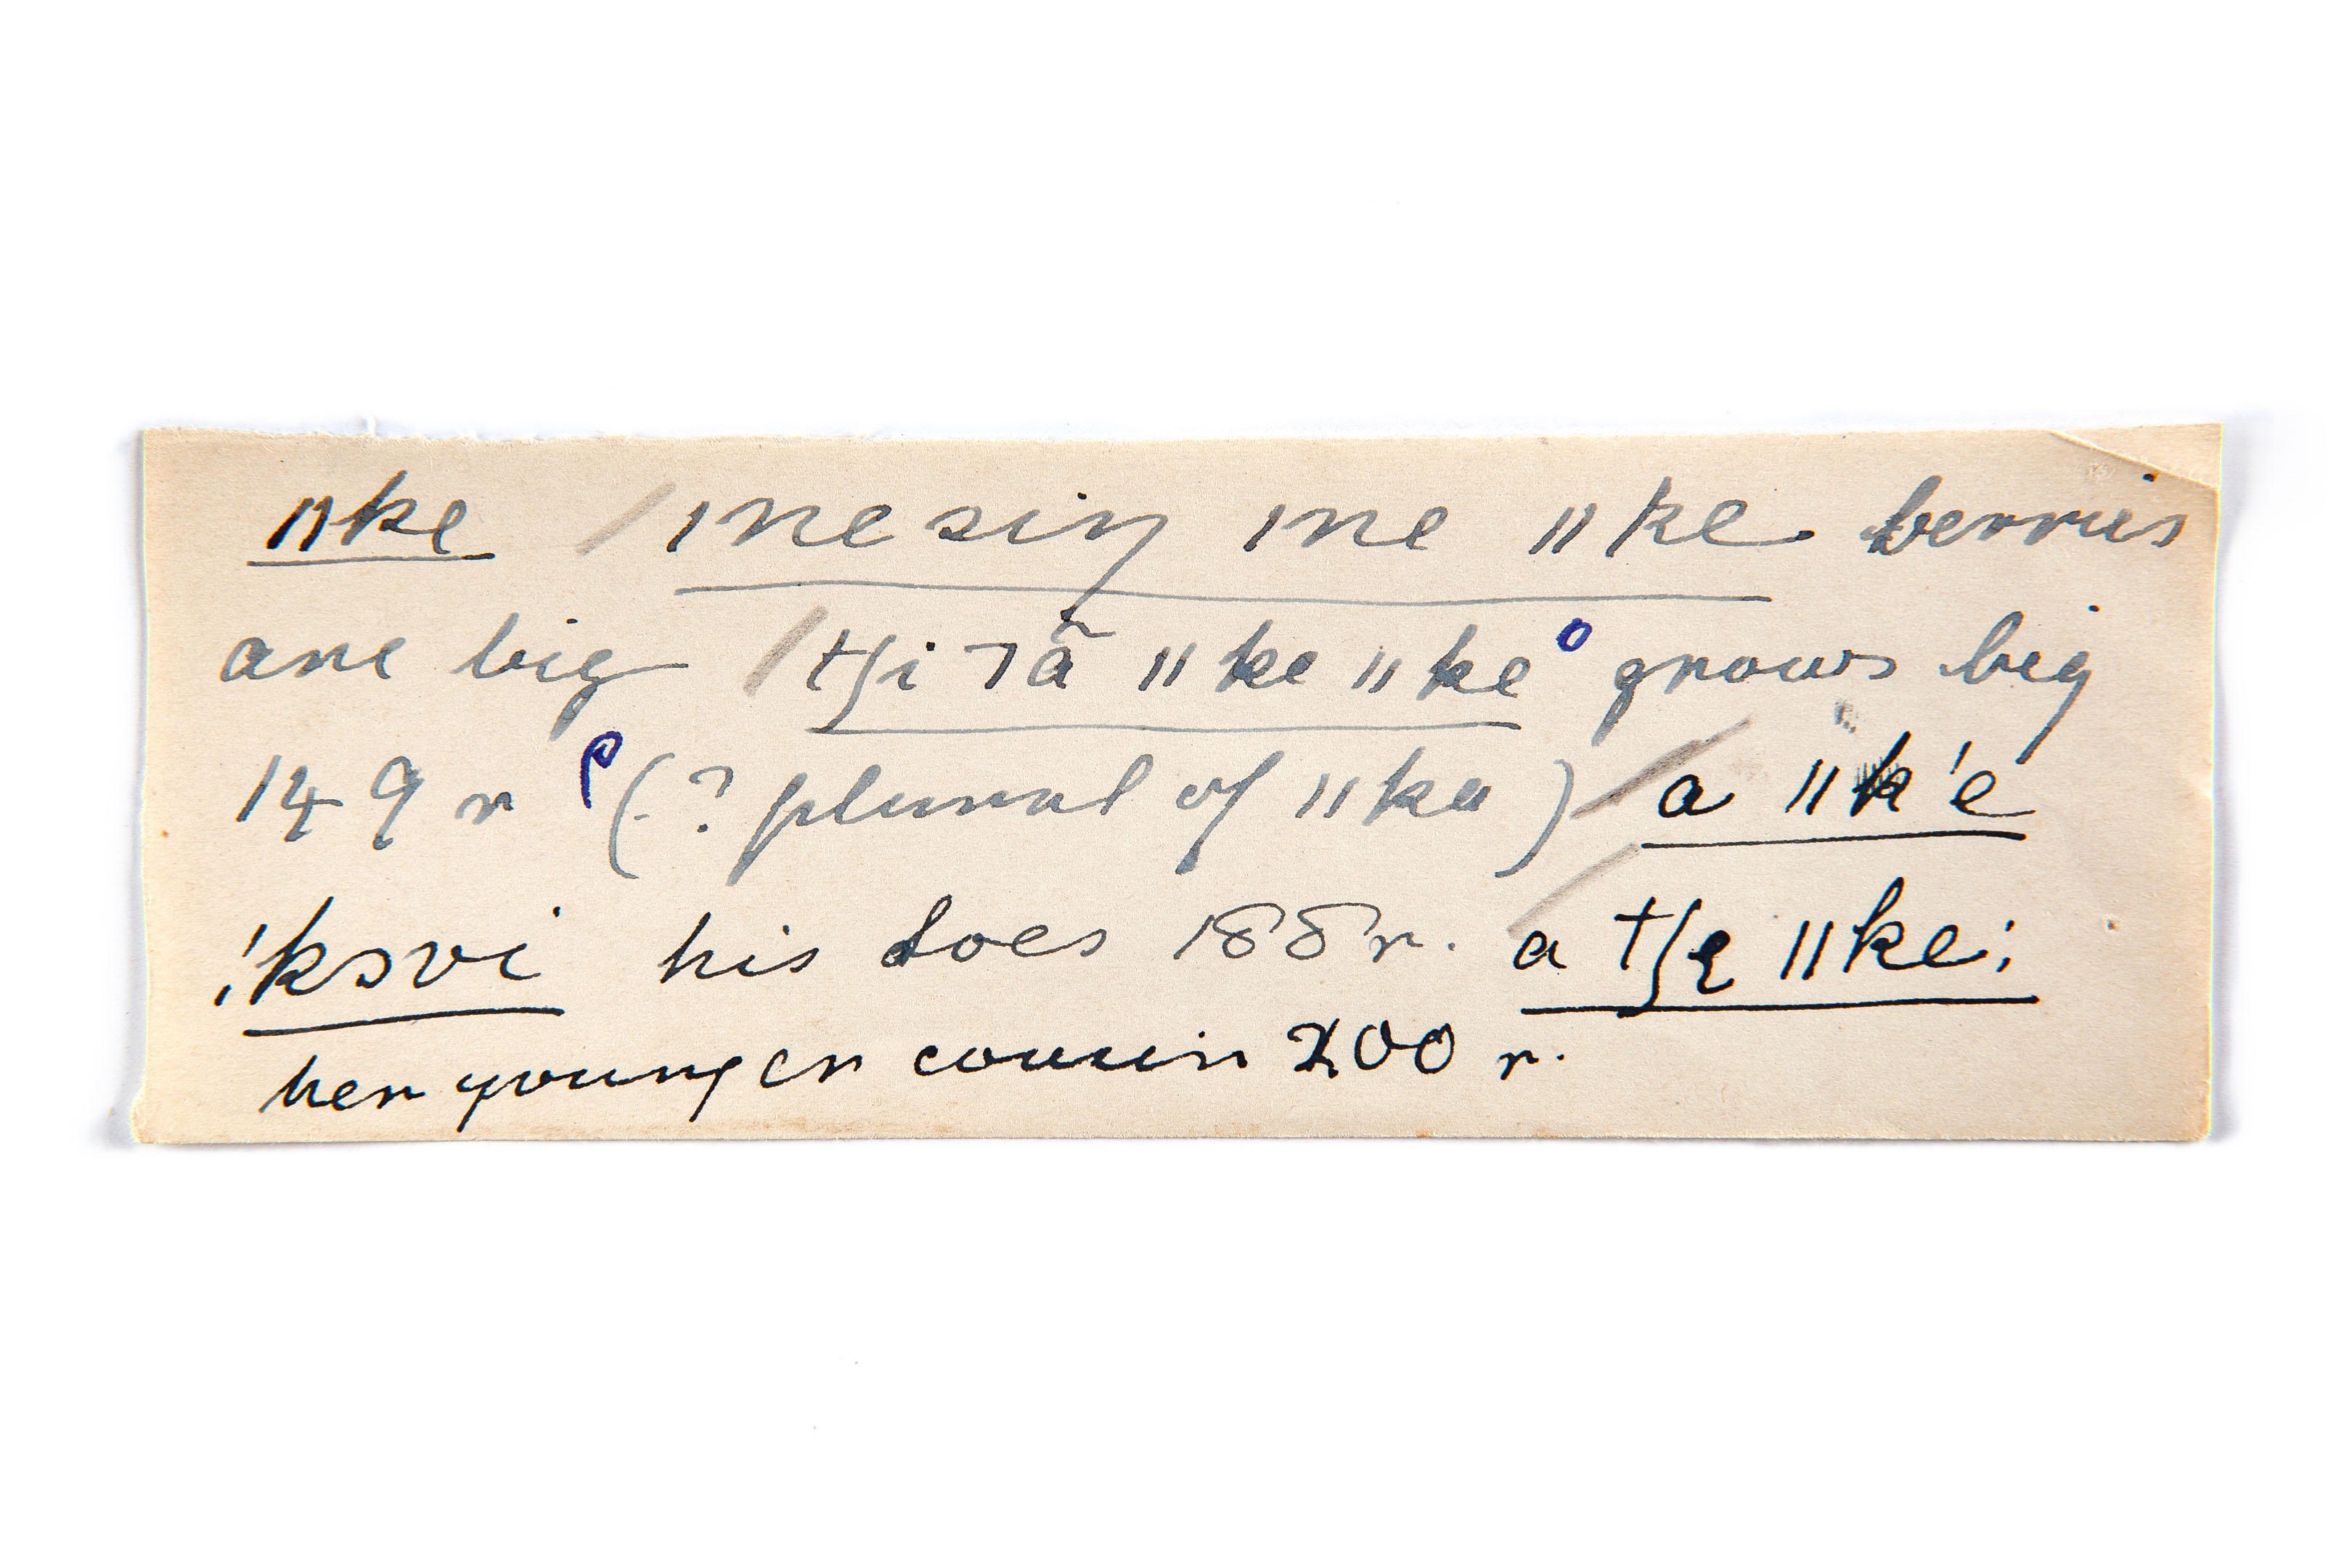 ǁke / ǀne siŋ ǀne ǁke. berries
are big / tʃi ㄱã ǁke ǁke° grows big
149 r ᑭ(? plural of ǁka) / a ǁk'e
!kɔvi his does 188 r. / a tʃe ǁke;
her younger cousin 200 r.